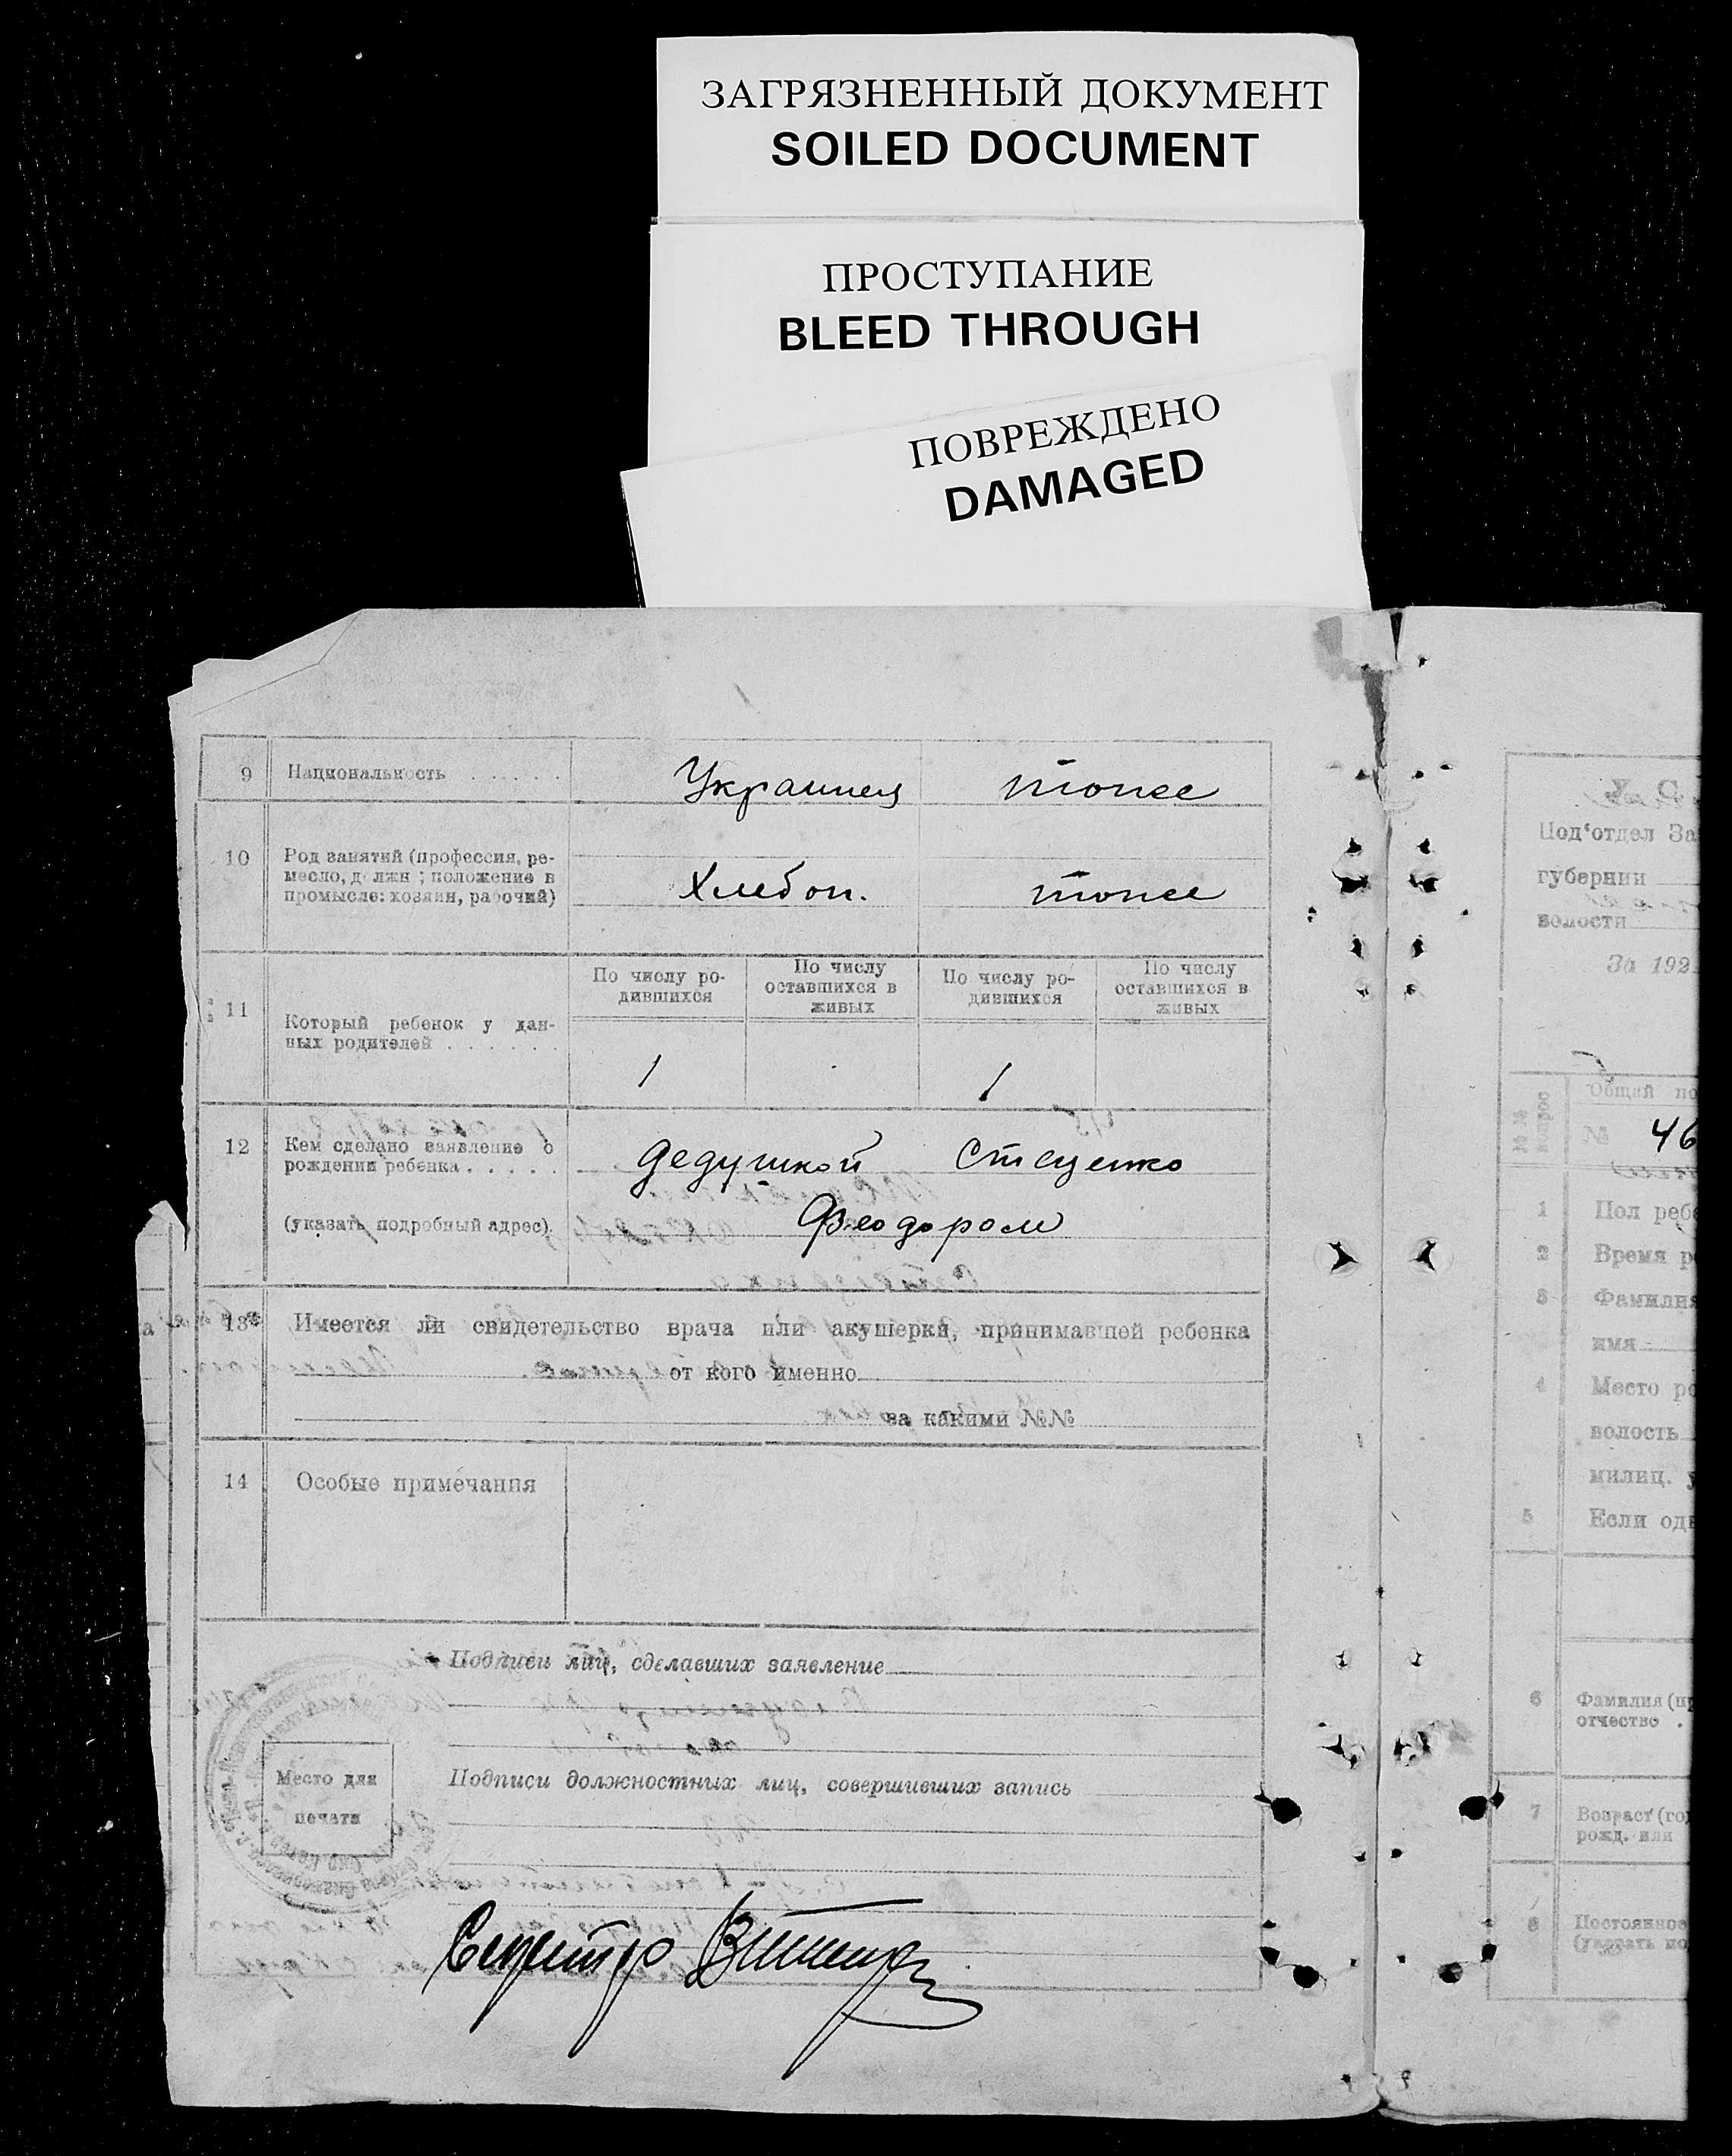 ЗАГРЯЗНЕННЫЙ ДОКУМЕНТ
SOILED DOCUMENT
ПРОСТУПАНИЕ
BLEED THROUGH
ПОВРЕЖДЕНО
DAMAGED
9 Национальность . . . . . . Украинец тоже
10 Род занятий (профессия, ре-
месло, должн; положение в
промысле: хозяин, рабочий) Хлебоп. тоже
11 Который ребенок у дан-
ных родителей . . . . . .
По числу ро-
дившихся
По числу
оставшихся в
живых
По числу ро-
дившихся
По числу
оставшихся в
живых
1 1
12 Кем сделано заявление о
рождении ребенка . . . . . Дедушкой Стеценко
(указать подробный адрес). Феодором
13 Имеется ли свидетельство врача или акушерки, принимавшей ребенка
от кого именно
за какими №№
14 Особые примечания
Подписи лиц, сделавших заявление
Место для
печати
Подписи должностных лиц, совершивших запись
Под‘отдел За
губернии
волости
За 192
Общий по
№ 46
1 Пол реб
2 Время р
3 Фамилия
имя
4 Место ро
волость
милиц. у
5 Если од
6 Фамилия (п
отчество .
7 Возраст (го
рожд. или
8 Постоянное
(указать по